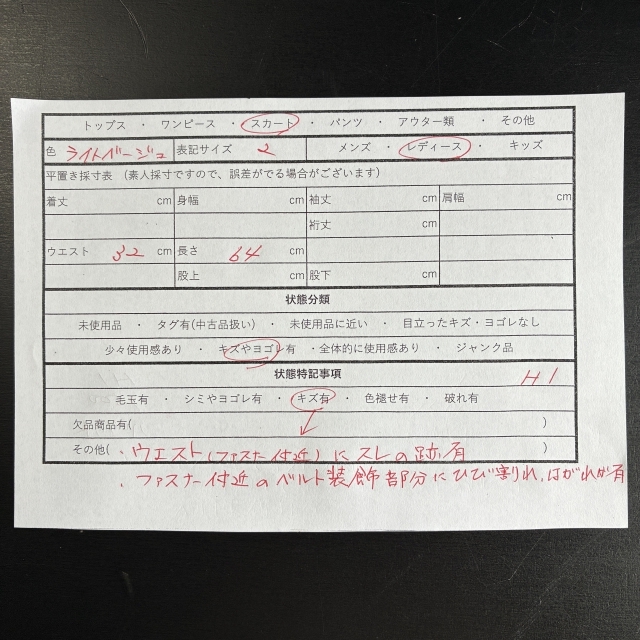 トップス ・ ワンピース ・ スカート ・ パンツ ・ アウター類 ・ その他
色 ライトベージュ 表記サイズ 2 メンズ ・ レディース ・ キッズ
平置き採寸表 (素人採寸ですので、誤差がでる場合がございます)
着丈 cm 身幅 cm 袖丈 cm 肩幅 cm
裄丈 cm
ウエスト 32 cm 長さ 64 cm
股上 cm 股下 cm
状態分類
未使用品 ・ タグ有(中古品扱い) ・ 未使用品に近い ・ 目立ったキズ・ヨゴレなし
少々使用感あり ・ キズやヨゴレ有 ・全体的に使用感あり ・ ジャンク品
状態特記事項 H1
毛玉有 ・ シミやヨゴレ有 ・ キズ有 ・ 色褪せ有 ・ 破れ有
欠品商品有( )
その他( ・ウエスト(ファスナー付近)にスレの跡有 )
・ファスナー付近のベルト装飾部分にひび割れ、はがれが有